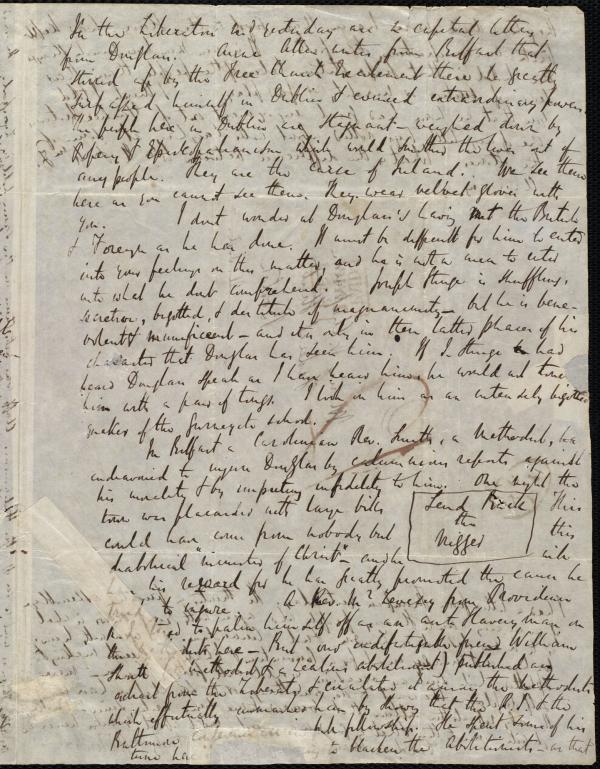 In the Liberator recd yesterday are two capital letters
from Douglass. Anne Allen writes from Belfast that
stirred up by the Free Church Excitement there he greatly
surpassed himself in Dublin & evinced extraordinary powers.
The people here in Dublin are stagnant - weighed down by
Popery & Episcopalianism which would smother the lives out of
any people. They are the curse of Ireland. We see them
here as you cannot see them. They wear velvet gloves with
you. I dont wonder at Douglass's having met the British
& Foreign as he has done. It must be difficult for him to enter
into your feelings on this matter, and he is not a man to enter
into what he dont comprehend. Joseph Sturge is shuffling,
secretive, bigotted, & destitute of magnanimity - but he is bene-
volent & munificent - and it is only in these latter phases of his
character that Douglass has seen him. If J. Sturge had
heard Douglass speak as I have heard him, he would not touch
him with a pair of tongs. I look on him as an intensely bigotted
quaker of the Gurneyite school.
In Belfast a Carolinian Rev. Smith, a Methodist, has
endeavored to injure Douglass by calumnious reports against
his morality & by imputing infidelity to him. One night the
town was placarded with large bills
Send Back
the
Nigger
This
could have come from nobody but this
diabolical "minister of Christ" - and he
his regard for he has greatly promoted the cause he
to injure. A Rev. Mr. from Providence
to palm himself off as an anti slavery man on
the here - But our indefatigable friend William
methodist (& zealous abolitionist) published an
extract from the Liberator & circulated it among the methodists
which effectually unmasked him by showing that the &
fellowship. He spent some of his
Baltimore
time to blacken the abolitionists - so that